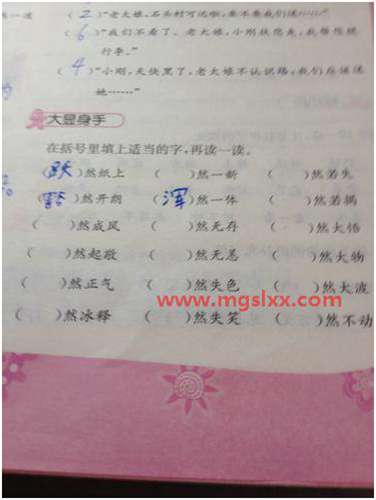 (2)"老大娘,石头村可远啦,要不要我们送……"
(6)"我们不看了。老大娘,小刚扶您走,我帮您提
行李。"
(4)"小刚,天快黑了,老大娘不认识路,我们应该送
她……"
大显身手
在括号里填上适当的字,再读一读。
(跃)然纸上 ( )然一新 ( )然若失
(豁)然开朗 (浑)然一体 ( )然若揭
( )然成风 ( )然无存 ( )然大悟
( )然起敬 ( )然无恙 ( )然大物
( )然正气 ( )然失色 ( )然大波
www.mgslxx.com
( )然冰释 ( )然失笑 ( )然不动